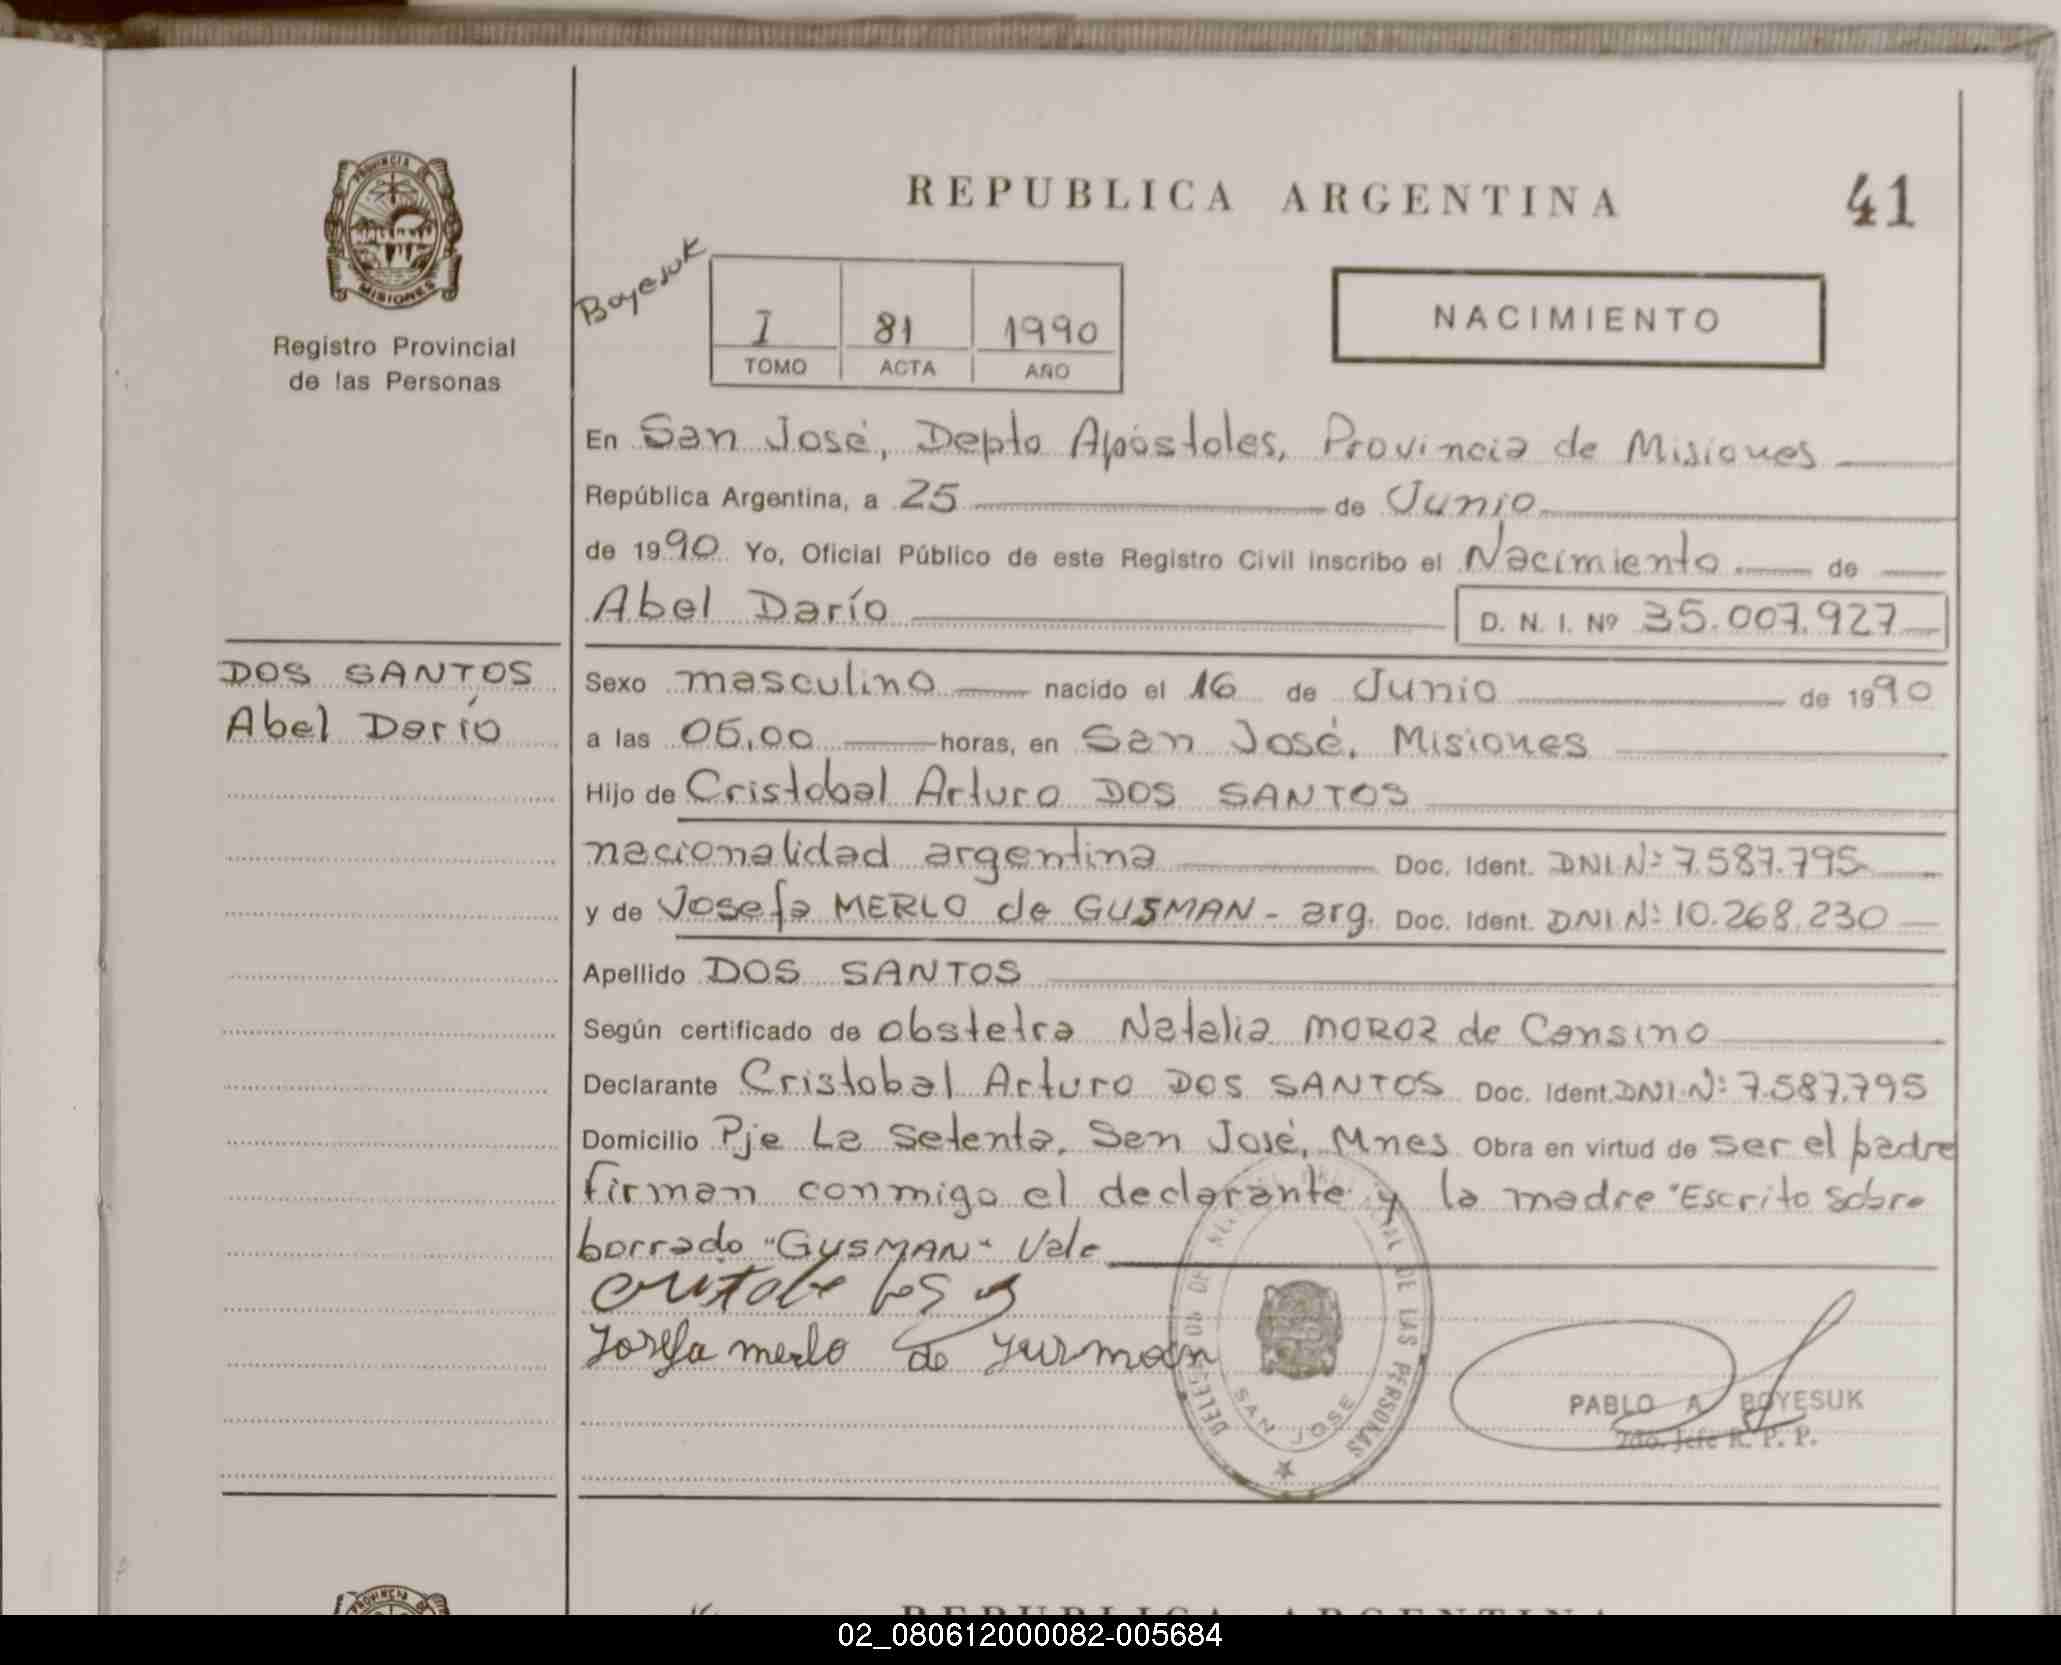 PROVINCIA DE
MISIONES
Registro Provincial
de las Personas
REPUBLICA ARGENTINA
41
Boyesuk
I 81 1990
TOMO ACTA AÑO
NACIMIENTO
En San José, Depto Apóstoles, Provincia de Misiones
República Argentina, a 25 de Junio
de 1990 Yo, Oficial Público de este Registro Civil inscribo el Nacimiento de
Abel Darío D. N. I. Nº 35.007.927
DOS SANTOS
Abel Darío
Sexo masculino nacido el 16 de Junio de 1990
a las 05,00 horas, en San José, Misiones
Hijo de Cristobal Arturo DOS SANTOS
nacionalidad argentina Doc. Ident. DNI.Nº 7.587.795
y de Josefa MERLO de GUSMAN - arg. Doc. Ident. DNI.Nº 10.268.230
Apellido DOS SANTOS
Según certificado de obstetra Natalia MOROZ de Cansino
Declarante Cristobal Arturo DOS SANTOS Doc. Ident. DNI.Nº 7.587.795
Domicilio Pje La Setenta, San José, Mnes Obra en virtud de ser el padre
firman conmigo el declarante y la madre "Escrito sobre
borrado "GUSMAN" Vale
Josefa merlo de Gusman
DE LAS PERSONAS
SAN JOSE
PABLO A. BOYESUK
2do. Jefe R. P. P.
PROVINCIA DE
REPUBLICA ARGENTINA
02_080612000082-005684